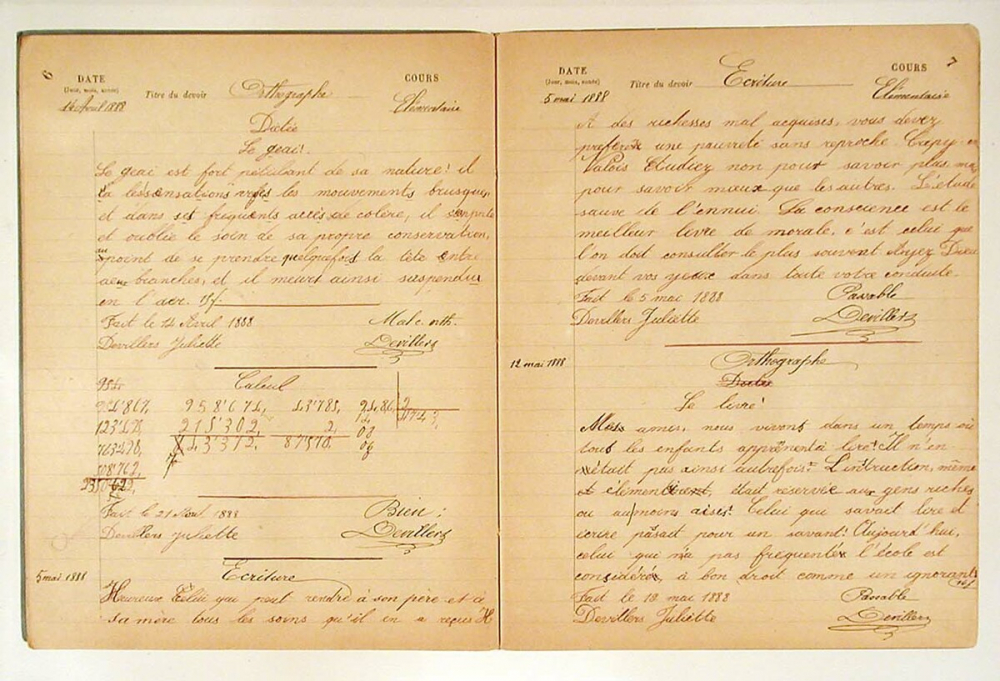 6
DATE
(Jour, mois, année)
14 Avril 1888
Titre du devoir Orthographe
COURS
Elémentaire
Dictée
Le geai!
Le geai est fort pétulant de sa nature! il
a les sensations vives les mouvements brusques
et dans ses fréquents accès de colère, il s'emporte
et oublie le soin de sa propre conservation,
au point de se prendre quelquefois la tête entre
deux branches, et il meurt ainsi suspendu
en l'air.
Fait le 14 Avril 1888 Mal c. orth.
Devillers Juliette Devillers
Calcul
958'671, 43'785,
215'302, 2,
743'372, 87'570,
123'
708'762,
Fait le 21 Avril 1888 Bien :
Devillers Juliette Devillers
5 mai 1888
Ecriture
Heureuse Celui qui peut rendre à son père et à
sa mère tous les soins qu'il en a reçus
7
DATE
(Jour, mois, année)
5 mai 1888
Titre du devoir Ecriture
COURS
Elémentaire
A des richesses mal acquises, vous devez
préférer une pauvreté sans reproche. Crépy-en
Valois Etudiez non pour savoir plus ma
pour savoir mieux que les autres. L'étude
sauve de l'ennui. La conscience est le
meilleur livre de morale, c'est celui que
l'on doit consulter le plus souvent Ayez Dieu
devant vos yeux dans toute votre conduite.
Fait le 5 mai 1888 Passable
Devillers Juliette Devillers
12 mai 1888
Orthographe
Dictée
Le livre!
Mes amis, nous vivons dans un temps où
tous les enfants apprennent à lire! Il n'en
était pas ainsi autrefois. L'instruction, même
élémentaire, était réservée aux gens riches
ou au moins aisés! Celui qui savait lire et
écrire passait pour un savant! Aujourd'hui,
celui qui n'a pas fréquenté l'école est
considéré, à bon droit comme un ignorant
Fait le 12 mai 1888 Passable
Devillers Juliette Devillers